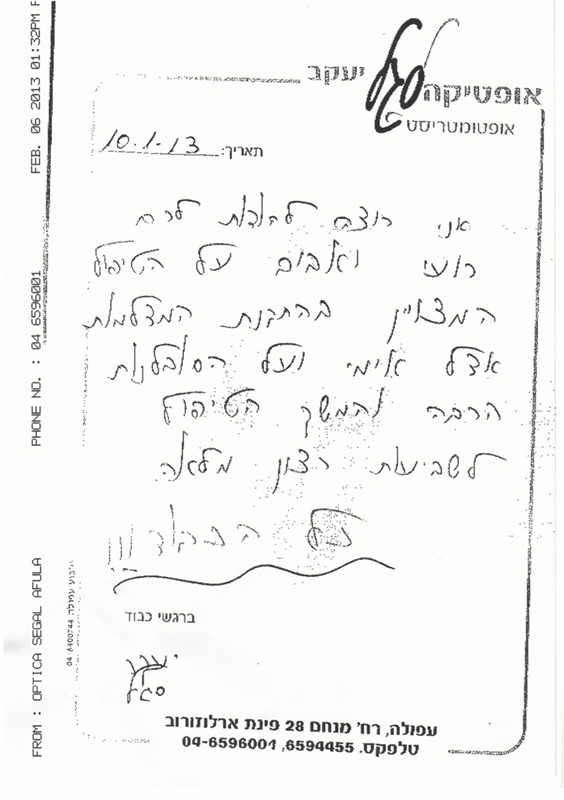 FEB. 06 2013 01:32PM
PHONE NO. : 04 6596001
FROM : OPTICA SEGAL AFULA
אופטיקה סגל יעקב
אופטומטריסט
תאריך: 10.1.13
אני רוצה להודות לכם
רועי ואבום על הטיפול
המצויין בהתקנת המצלמות
אצל אימי ועל הסובלנות
הרבה והמשך הטיפול
לשביעות רצון מלאה
כל הכבוד
ברגשי כבוד
יעקב
סגל
עפולה, רח' מנחם 28 פינת ארלוזורוב
טלפקס. 6594455, 04-6596001
04-6400744